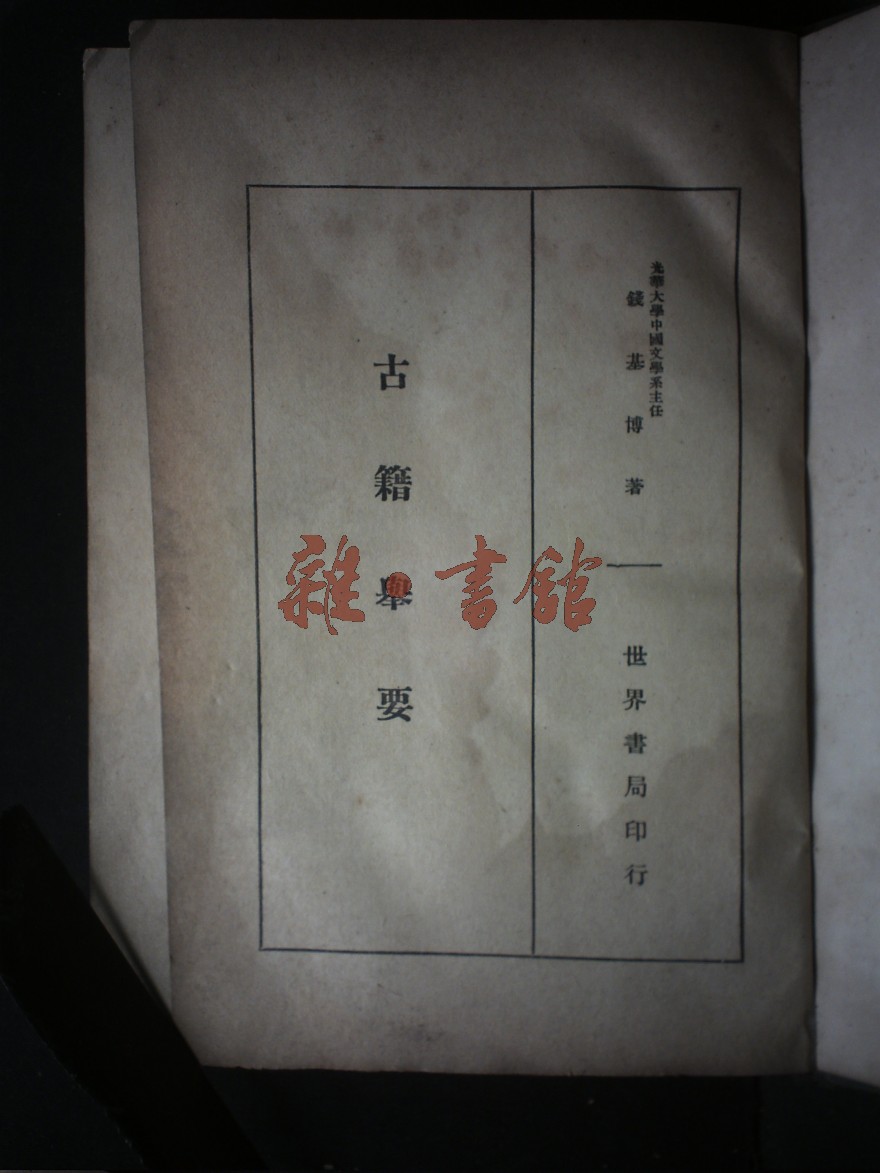 光華大學中國文學系主任
錢基博著
世界書局印行
古籍舉要
雜書館